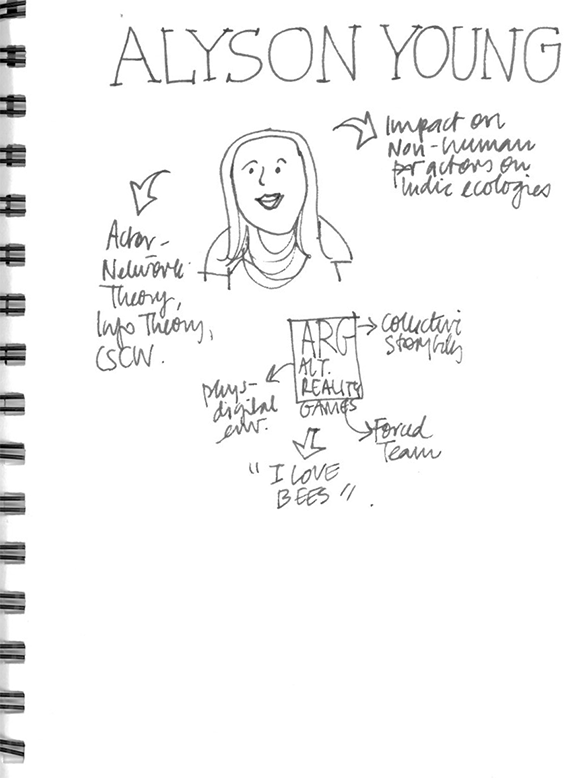 ALYSON YOUNG
Impact on
Non-human
actors on
Indic ecologies
Actor-
Network
Theory,
Info Theory,
CSCW.
ARG
ALT.
REALITY
GAMES
Collective
Storytelling
phys-
digital
env.
Forced
Team
"I LOVE
BEES".